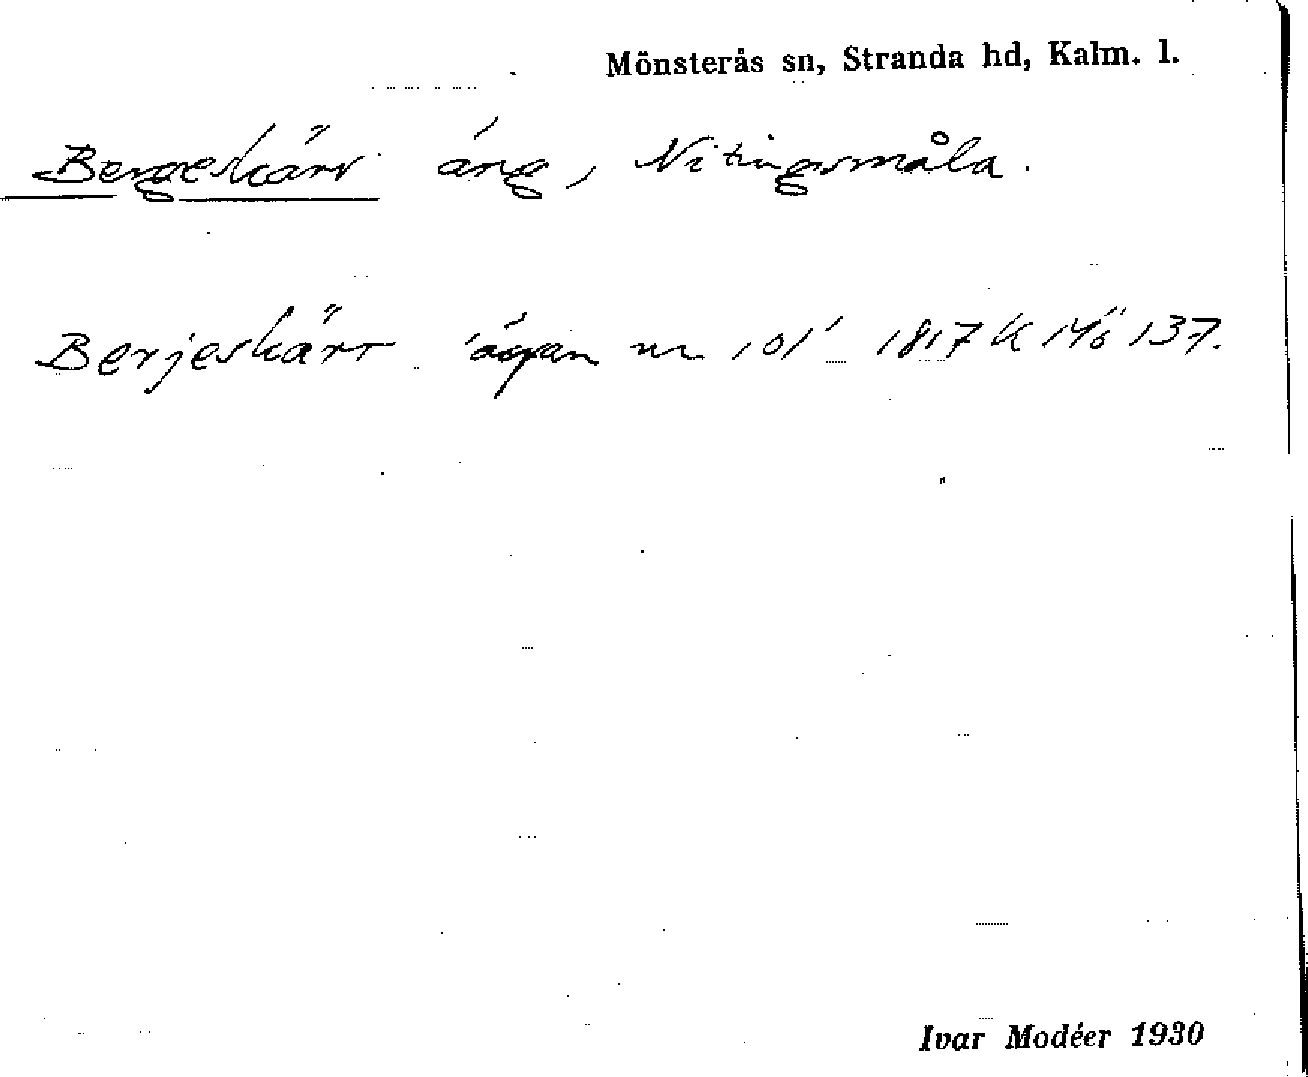 Mönsterås sn, Stranda hd, Kalm. l.
Bergeskärr äng, Nitingsmåla.
Berjeskärr nr 101 1817 K Mö 137.
Ivar Modéer 1930